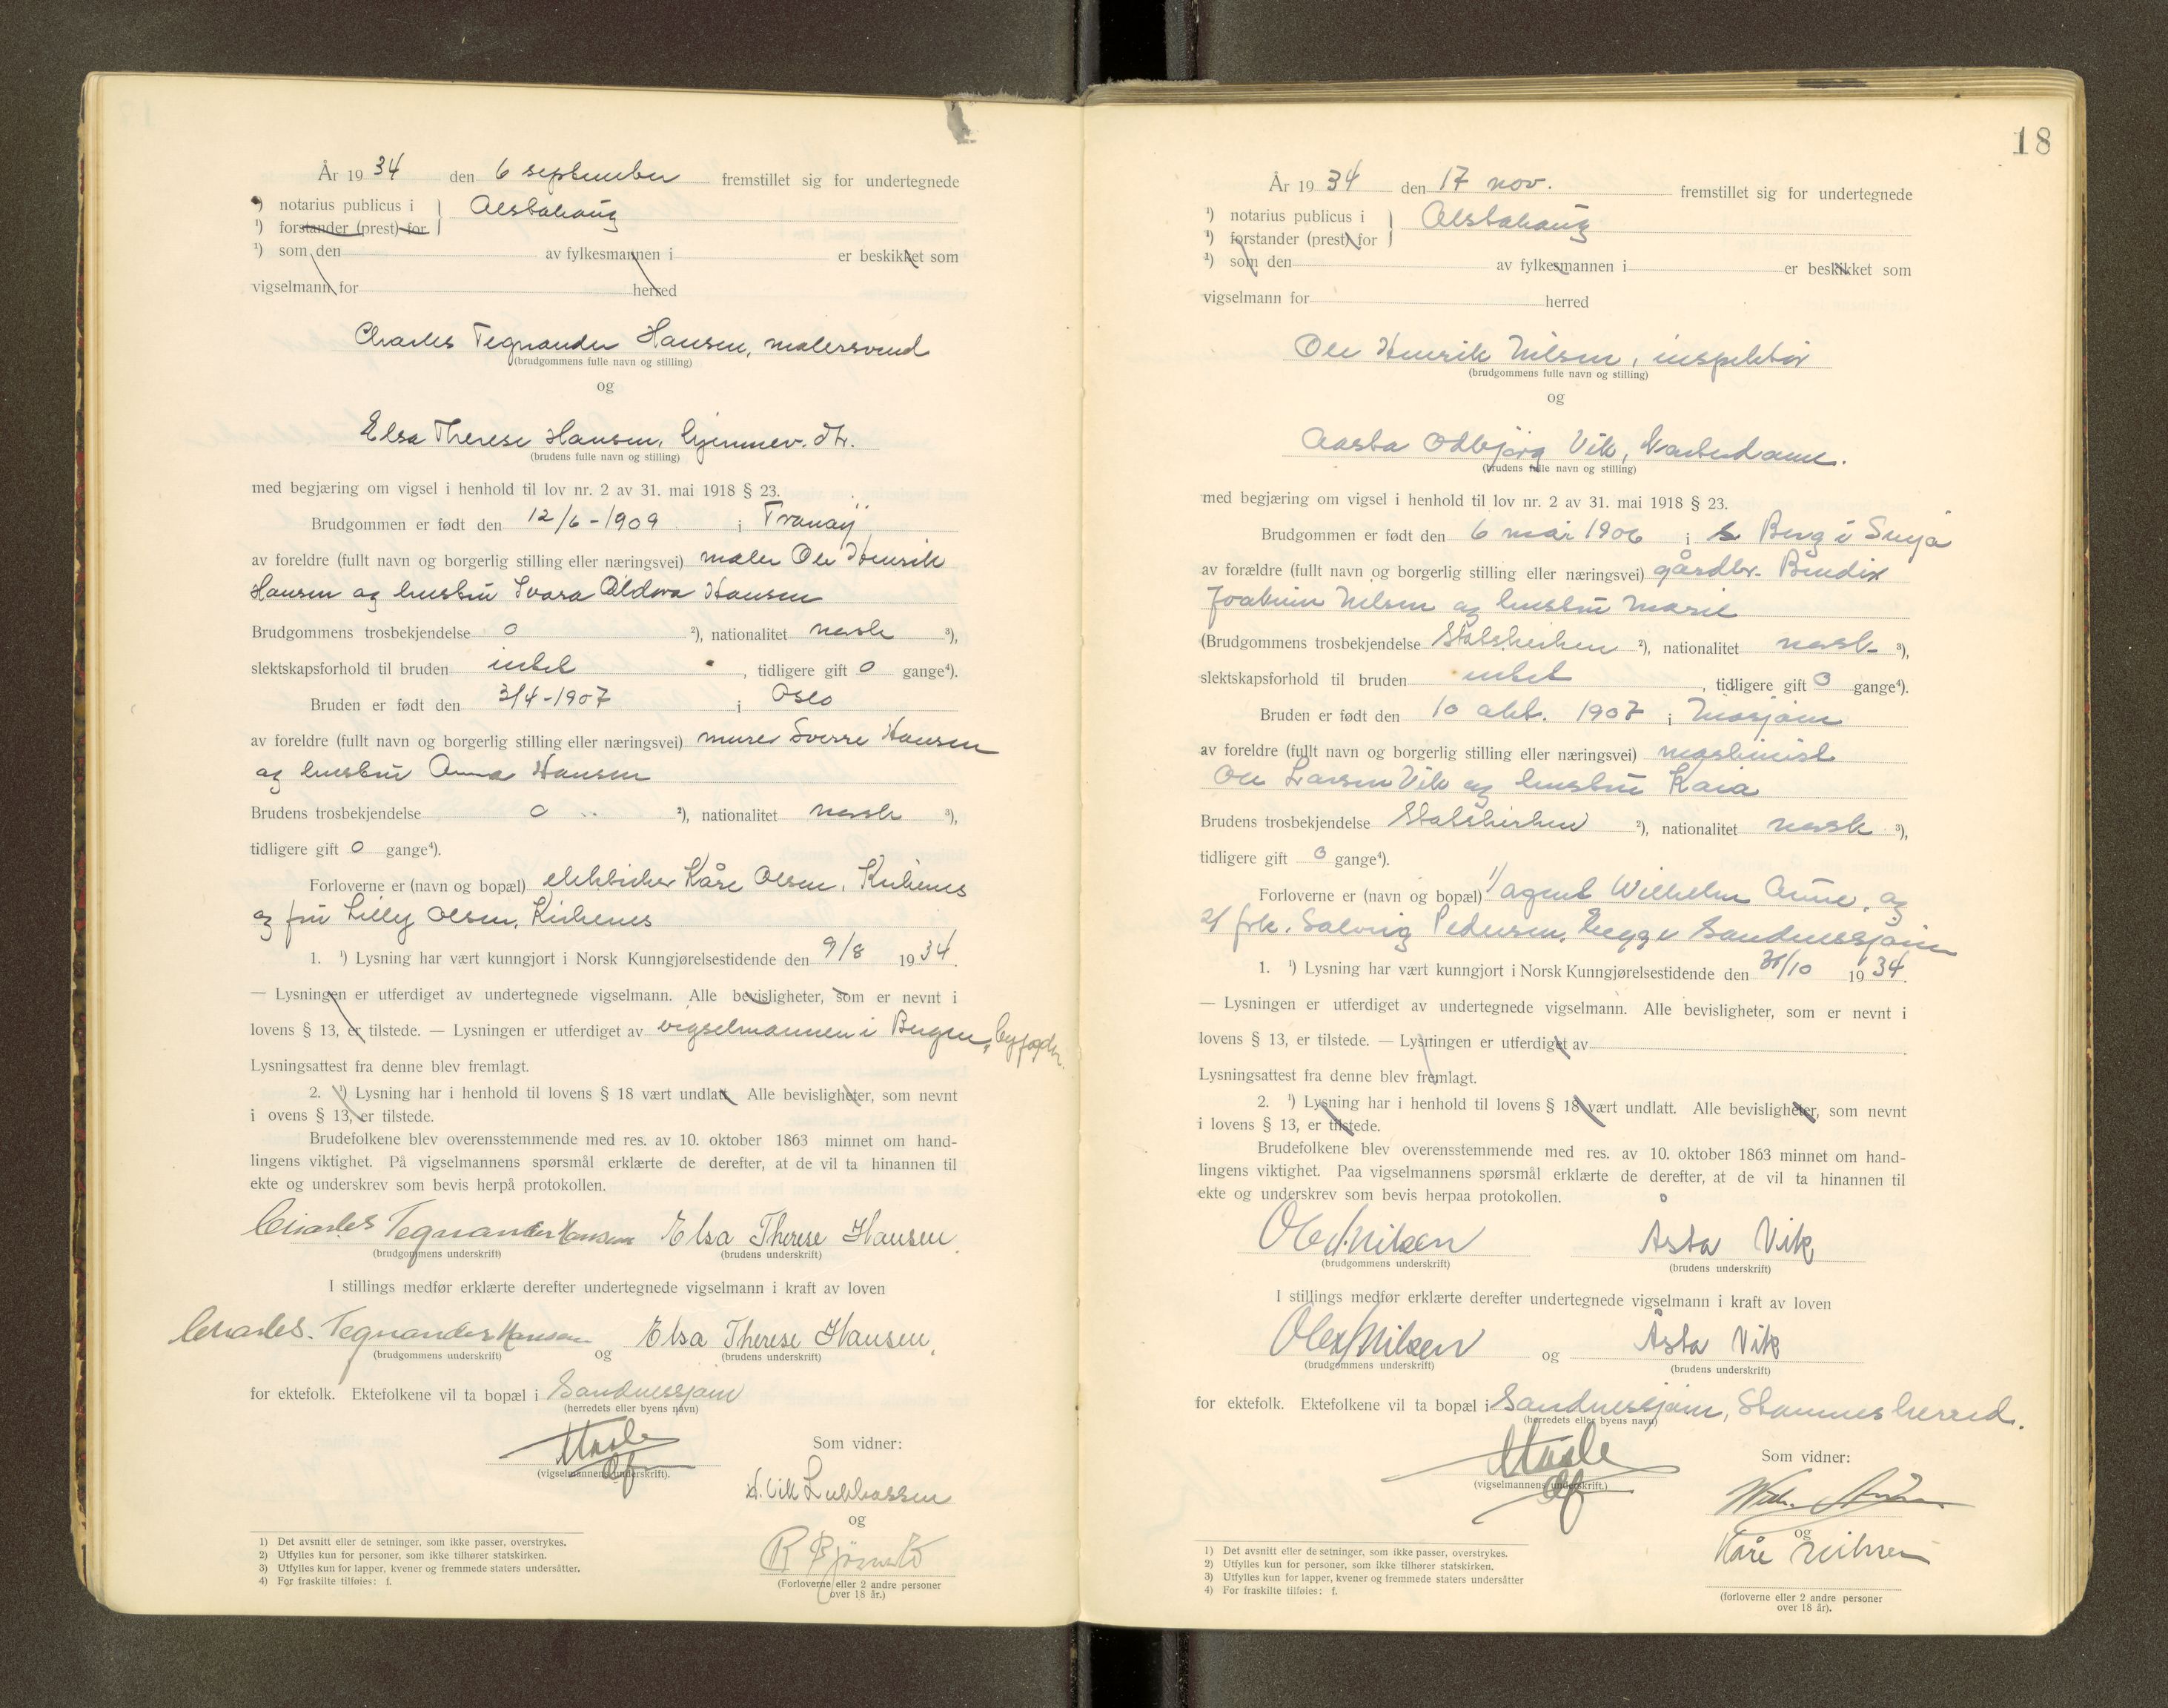 År 1934 den 6 september fremstillet sig for undertegnede
¹) notarius publicus i } Alstahaug
¹) forstander (prest) for
¹) som den av fylkesmannen i er beskikket som
vigselmann for herred
Charles Tegnander Hansen, malersvend
(brudgommens fulle navn og stilling)
og
Elsa Therese Hansen, hjemmev. dtr.
(brudens fulle navn og stilling)
med begjæring om vigsel i henhold til lov nr. 2 av 31. mai 1918 § 23.
Brudgommen er født den 12/6-1909 i Tranøy
av foreldre (fullt navn og borgerlig stilling eller næringsvei) maler Ole Henrik
Hansen og hustru Svara Hansen
Brudgommens trosbekjendelse 0 ²), nationalitet norsk ³),
slektskapsforhold til bruden intet, tidligere gift 0 gange⁴).
Bruden er født den 3/4-1907 i Oslo
av foreldre (fullt navn og borgerlig stilling eller næringsvei) murer Sverre Hansen
og hustru Anna Hansen
Brudens trosbekjendelse 0 ²), nationalitet norsk ³),
tidligere gift 0 gange⁴).
Forloverne er (navn og bopæl) elektriker Kåre Olsen, Kirkenes
og fru Lilly Olsen, Kirkenes
1. ¹) Lysning har vært kunngjort i Norsk Kunngjørelsestidende den 9/8 1934.
— Lysningen er utferdiget av undertegnede vigselmann. Alle bevisligheter, som er nevnt i
lovens § 13, er tilstede. — Lysningen er utferdiget av vigselmannen i Bergen, byfogden.
Lysningsattest fra denne blev fremlagt.
2. ¹) Lysning har i henhold til lovens § 18 vært undlatt. Alle bevisligheter, som nevnt
i ovens § 13, er tilstede.
Brudefolkene blev overensstemmende med res. av 10. oktober 1863 minnet om hand-
lingens viktighet. På vigselmannens spørsmål erklærte de derefter, at de vil ta hinannen til
ekte og underskrev som bevis herpå protokollen.
Charles Tegnander Hansen Elsa Therese Hansen.
(brudgommens underskrift) (brudens underskrift)
I stillings medfør erklærte derefter undertegnede vigselmann i kraft av loven
Charles. Tegnander Hansen og Elsa Therese Hansen.
(brudgommens underskrift) (brudens underskrift)
for ektefolk. Ektefolkene vil ta bopæl i Sandnessjøen
(herredets eller byens navn)
Som vidner:
(vigselmannens underskrift).
og
(Forloverne eller 2 andre personer
over 18 år.)
1) Det avsnitt eller de setninger, som ikke passer, overstrykes.
2) Utfylles kun for personer, som ikke tilhører statskirken.
3) Utfylles kun for lapper, kvener og fremmede staters undersåtter.
4) For fraskilte tilføies: f.
18
År 1934 den 17 nov. fremstillet sig for undertegnede
¹) notarius publicus i } Alstahaug
¹) forstander (prest) for
¹) som den av fylkesmannen i er beskikket som
vigselmann for herred
Ole Henrik Nilsen, inspektør
(brudgommens fulle navn og stilling)
og
Aasta Odbjørg Vik, kontordame.
(brudens fulle navn og stilling)
med begjæring om vigsel i henhold til lov nr. 2 av 31. mai 1918 § 23.
Brudgommen er født den 6 mai 1906 i Berg i Senja
av forældre (fullt navn og borgerlig stilling eller næringsvei) gårdbr. Bendix
Joakim Nilsen og hustru Marie
(Brudgommens trosbekjendelse Statskirken ²), nationalitet norsk ³),
slektskapsforhold til bruden intet, tidligere gift 0 gange⁴).
Bruden er født den 10 okt. 1907 i Mosjøen
av foreldre (fullt navn og borgerlig stilling eller næringsvei) maskinist
Ole Larsen Vik og hustru Kaia
Brudens trosbekjendelse Statskirken ²), nationalitet norsk ³),
tidligere gift 0 gange⁴).
Forloverne er (navn og bopæl) 1/ agent Wilhelm Aune, og
2/ frk. Solveig Pedersen, begge Sandnessjøen
1. ¹) Lysning har vært kunngjort i Norsk Kunngjørelsestidende den 31/10 1934.
— Lysningen er utferdiget av undertegnede vigselmann. Alle bevisligheter, som er nevnt i
lovens § 13, er tilstede. — Lysningen er utferdiget av
Lysningsattest fra denne blev fremlagt.
2. ¹) Lysning har i henhold til lovens § 18 vært undlatt. Alle bevisligheter, som nevnt
i lovens § 13, er tilstede.
Brudefolkene blev overensstemmende med res. av 10. oktober 1863 minnet om hand-
lingens viktighet. Paa vigselmannens spørsmål erklærte de derefter, at de vil ta hinannen til
ekte og underskrev som bevis herpaa protokollen.
Ole H Nilsen Åsta Vik
(brudgommens underskrift) (brudens underskrift)
I stillings medfør erklærte derefter undertegnede vigselmann i kraft av loven
Ole H Nilsen og Åsta Vik
(brudgommens underskrift) (brudens underskrift)
for ektefolk. Ektefolkene vil ta bopæl i Sandnessjøen, Stamnes herred.
(herredets eller byens navn)
Som vidner:
(vigselmannens underskrift.)
og
Kåre Nilsen
(forloverne eller 2 andre personer
over 18 år).
1) Det avsnitt eller de setninger, som ikke passer, overstrykes.
2) Utfylles kun for personer, som ikke tilhører statskirken.
3) Utfylles kun for lapper, kvener og fremmede staters undersåtter
4) For fraskilte tilføies: f.